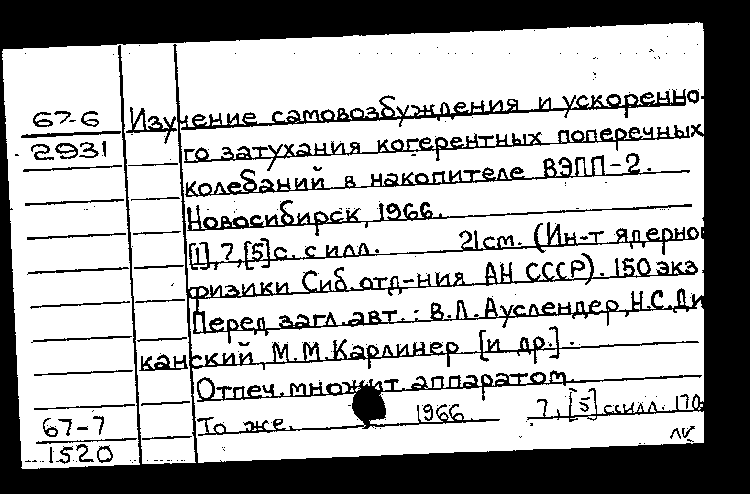 67-6 Изучение самовозбуждения и ускоренно-
2931 го затухания когерентных поперечных
колебаний в накопителе ВЭПП-2.
Новосибирск, 1966.
[1],7,[5]с. с илл. 21см. (Ин-т ядерно
физики Сиб. отд-ния АН СССР). 150 экз.
Перед загл. авт.: В.Л. Ауслендер, Н.С. Ди
канский, М.М. Карлинер [и др.].
Отпеч. множит. аппаратом.
67-7 То же. 1966 7, [5] с илл. 170
1520